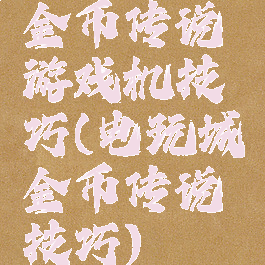 金币传说
游戏机技
巧(电玩城
金币传说
技巧)